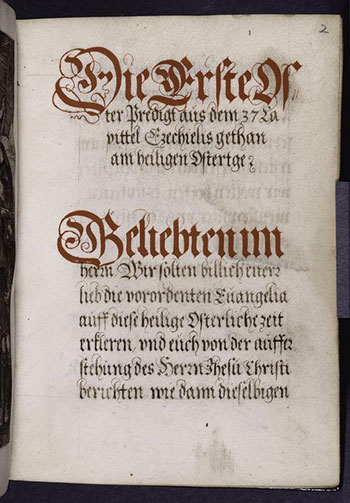 2
Die Erste Os
ter Predigt aus dem 37 Ca
pittel Ezechielis gethan
am heiligen Ostertge
Geliebten im
herrn Wir solten billich euerr
lieb die vorordenten Euangelia
auff diese heilige Osterliche zeit
erkleren, vnd euch von der auffer
stehung des Herrn Jhesu Christi
berichten wie dann dieselbigen